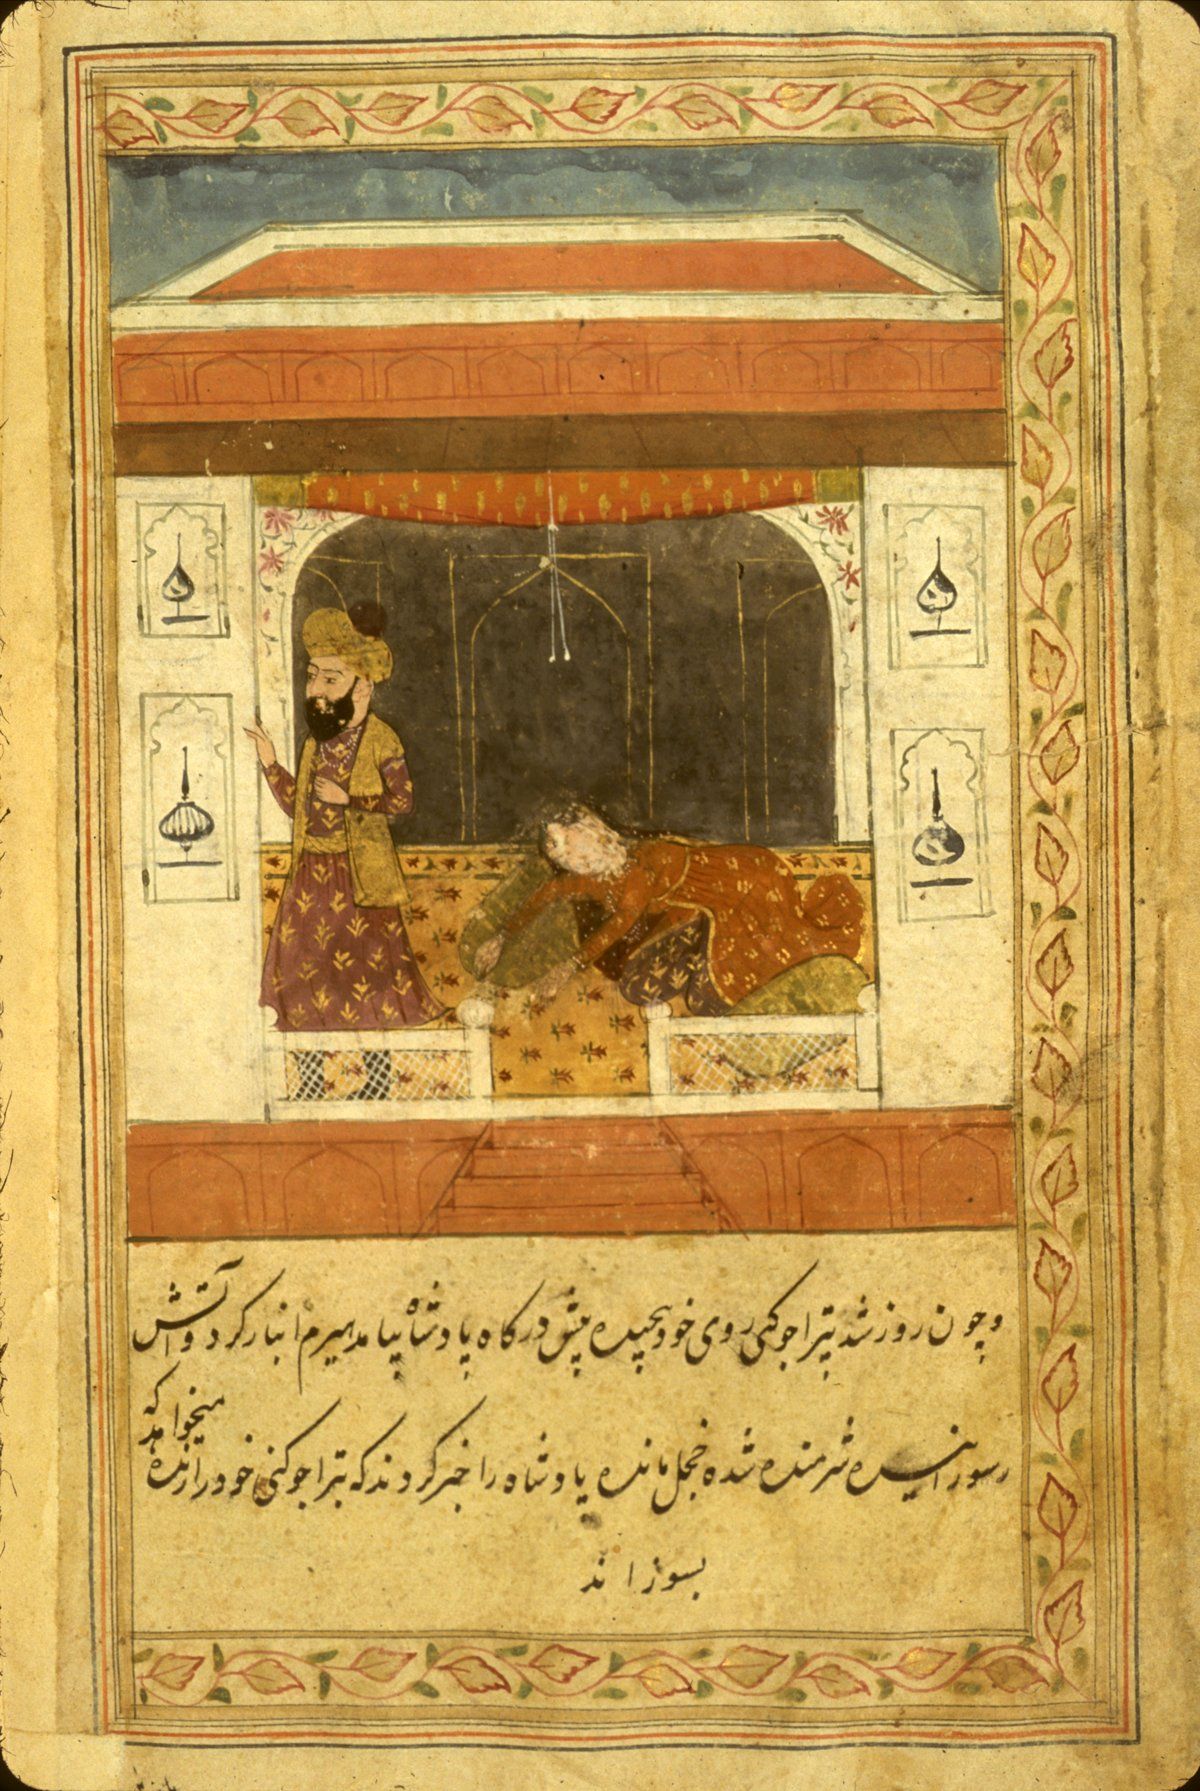 و چون روز شد بتراجوکی روی خود پیچیده پیش درگاه پادشاه بیامد هیرم انبار کرد و آتش
رسوزانیده شرمنده شده خجل مانده پادشاه را خبر کردند که بتراجوکی خود را زنده میخواهد که
بسوزاند